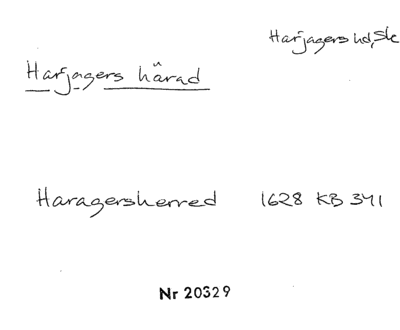 Harjagers hd, Sk
Harjagers härad
Haragersherred 1628 KB 341
Nr 20329